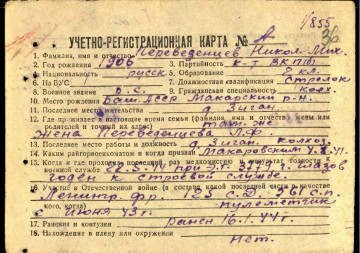 1855
36
УЧЕТНО-РЕГИСТРАЦИОННАЯ КАРТА № А
1. Фамилия, имя и отчество Переведенцев Никол. Мих.
2. Год рождения 1906 3. Партийность к-т ВКП(б)
4. Национальность русск 5. Образование 8 кл.
На ВУС 7. Должностная квалификация Стрелок
8. Военное звание 9. Гражданская специальность Колх.
10. Место рождения Баш. АССР Макарский р-н.
11. Последнее местожительство д. Зиган.
12. Где проживает в настоящее время семья (фамилия, имя и отчество жены и родителей и точный их адрес) там-же
жена Переведенцева Л.Ф.
13. Последнее место работы и должность д. Зиган. колхоз
14. Каким райгорвоенкоматом и когда призван Макаровским
15. Когда и где проходил последний раз медкомиссию и результат годности к военной службе при г. Глазов
годен к строевой службе.
16. Участие в Отечественной войне (в составе какой последней части в качестве кого, когда) Ленингр. фр. с.д. с.п.
с июня 43 г. пулеметчик
17. Ранения и контузии Ранен 16.1.44 г.
18. Нахождение в плену или окружении нет.